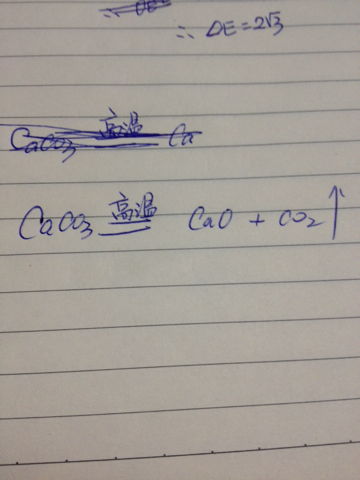 ∴ DE
∴ DE=2√3
CaCO₃ 高温 Ca
CaCO₃ 高温 CaO + CO₂↑